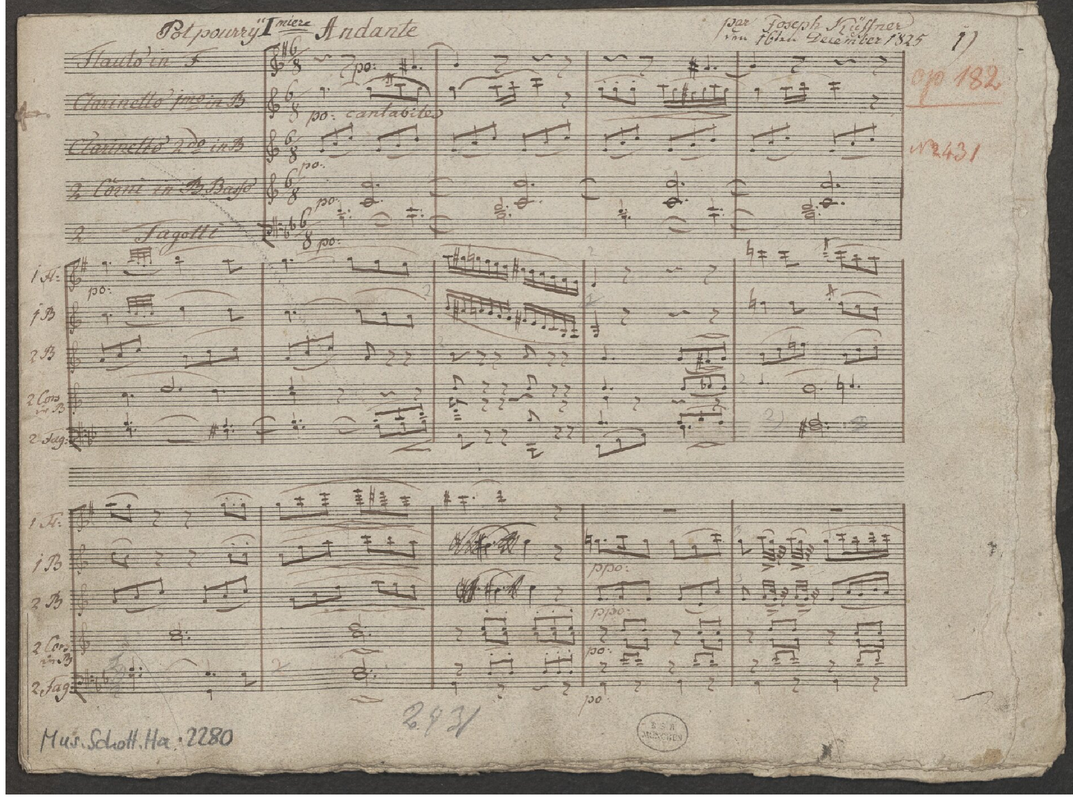 Potpourry I miere Andante
par Joseph Küffner
den 16ten December 1825
1)
op 182
N 2431
Flauto in F
po:
Clarinetto 1mo in B
po: cantabile
Clarinetto 2do in B
po:
2 Corni in B Basso
po
2 Fagotti
po:
1 Fl:
po:
1 B
2 B
2 Cors
in B
2 Fag:
1 Fl:
1 B
ppo:
2 B
ppo:
2 Cors
in B
po:
2 Fag:
po
2431
Mus. Schott. Ha. 2280
MÜNCHEN